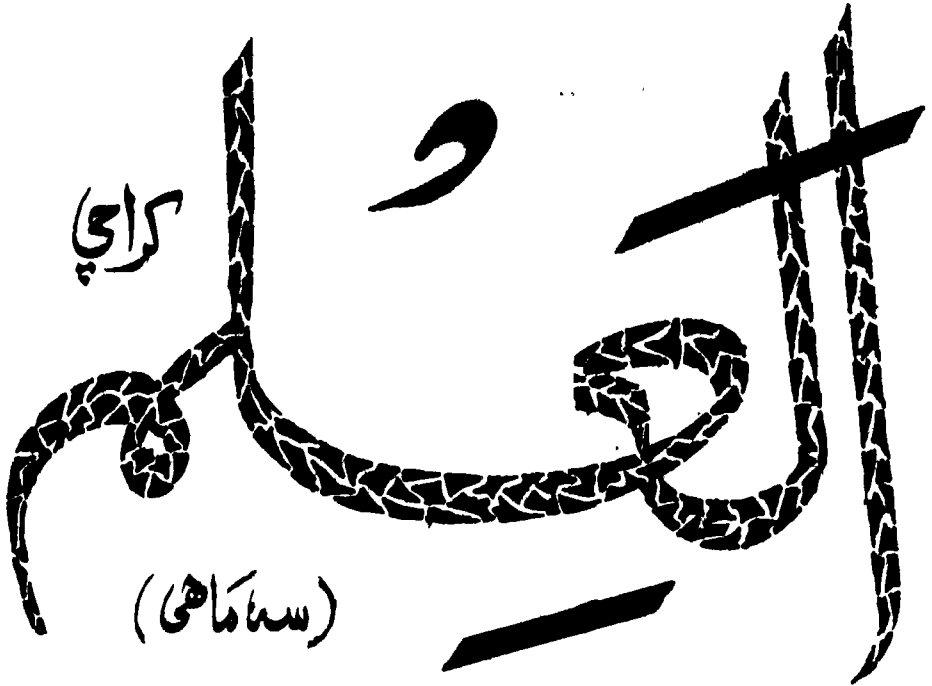 اَلعِلمُ
کراچی
(سہ مَاهی)